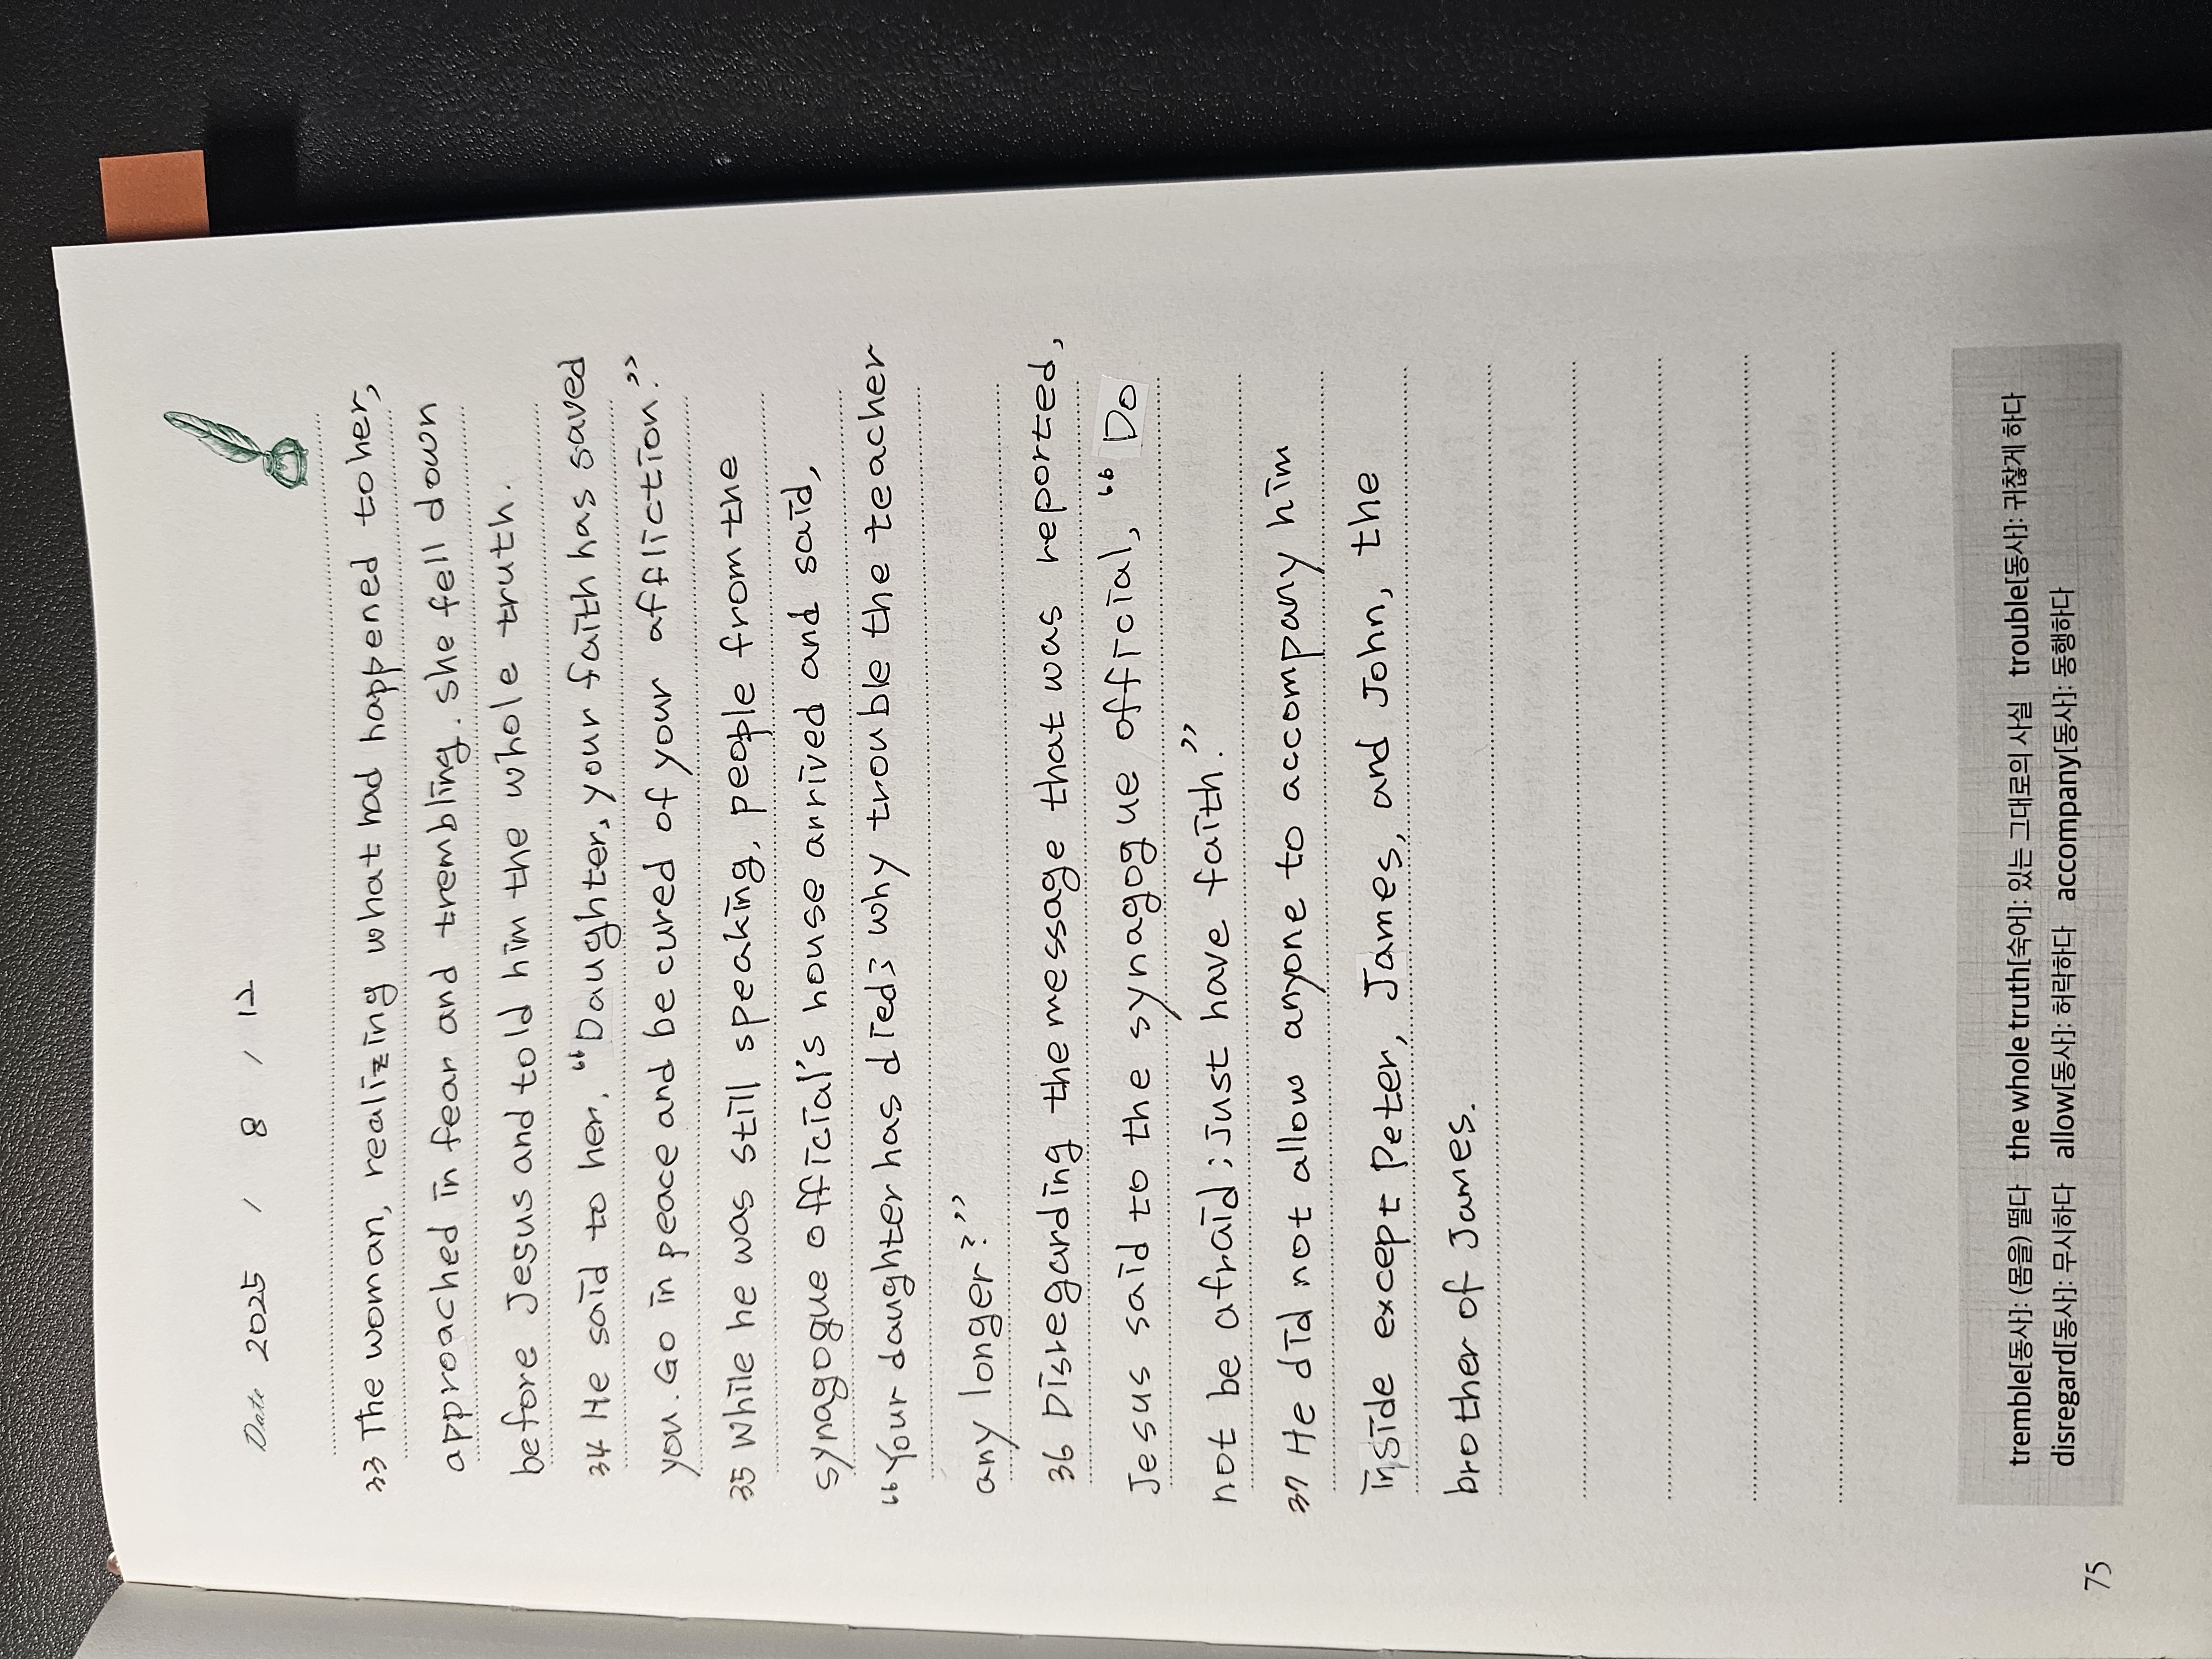 Date 2025 / 8 / 12
33 The woman, realizing what had happened to her,
approached in fear and trembling. she fell down
before Jesus and told him the whole truth.
34 He said to her, "Daughter, your faith has saved
you. Go in peace and be cured of your affliction."
35 While he was still speaking, people from the
synagogue official's house arrived and said,
"Your daughter has died; why trouble the teacher
any longer?"
36 Disregarding the message that was reported,
Jesus said to the synagogue official, "Do
not be afraid; just have faith."
37 He did not allow anyone to accompany him
inside except Peter, James, and John, the
brother of James.
tremble[동사]: (몸을) 떨다 the whole truth[숙어]: 있는 그대로의 사실 trouble[동사]: 귀찮게 하다
disregard[동사]: 무시하다 allow[동사]: 허락하다 accompany[동사]: 동행하다
75